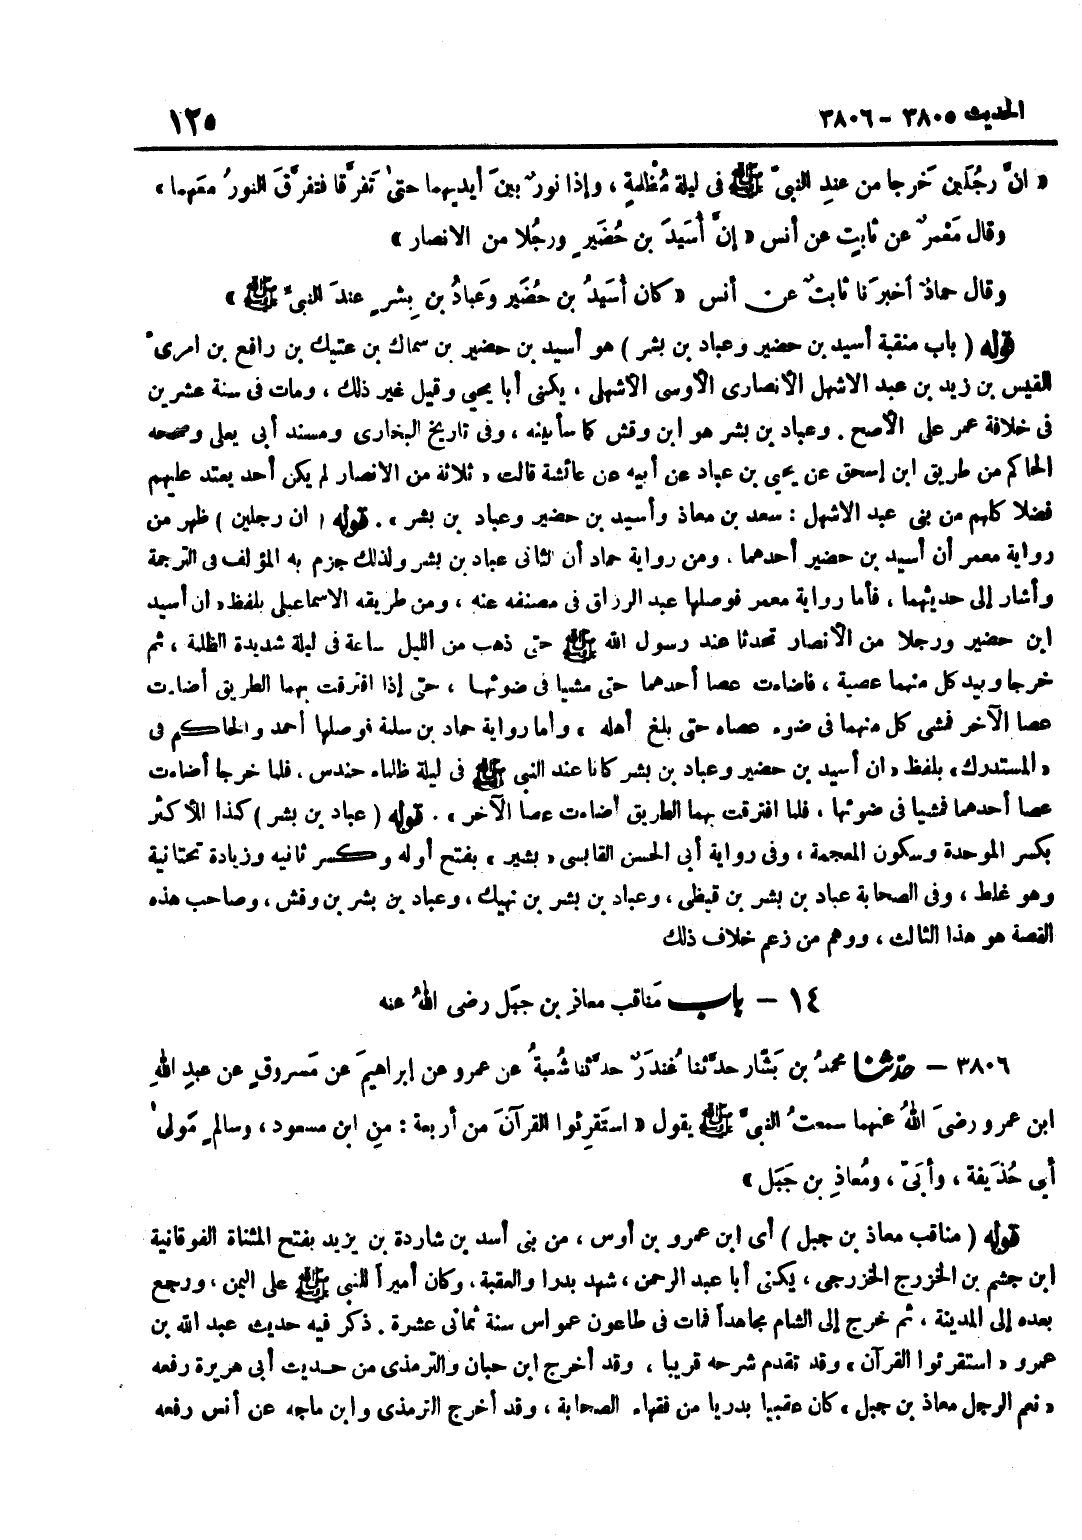 الحديث ٣٨٠٥ - ٣٨٠٦
١٢٥
« انَّ رجُلَين خَرجا من عندِ النبيِّ ﷺ فى ليلة مُظْلمةٍ ، وإذا نورٌ بينَ أيديهما حتىٰ تَفرَّقا فتفرَّقَ النورُ معَهما »
وقال مَعْمرٌ عن ثابتٍ عن أنس « إنَّ أُسَيدَ بن حُضَيرٍ ورجُلا من الانصار »
وقال حمادٌ أخبرَنا ثابتٌ عن أنس « كان أُسَيدُ بن حُضَير وعَبادُ بن بِشرٍ عندَ النبيِّ ﷺ »
قوله ( باب منقبة أسيد بن حضير وعباد بن بشر ) هو أسيد بن حضير بن سماك بن عتيك بن رافع بن امرى ٔ
القيس بن زيد بن عبد الاشهل الأنصارى الأوسى الأشهلى ، يكنى أبا يحيى وقيل غير ذلك ، ومات فى سنة عشرين
فى خلافة عمر على الأصح . وعباد بن بشر هو ابن وقش كما سأبينه ، وفى تاريخ البخارى ومسند أبى يعلى وصححه
الحاكم من طريق ابن إسحق عن يحيى بن عباد عن أبيه عن عائشة قالت « ثلاثة من الانصار لم يكن أحد يعتد عليهم
فضلا كلهم من بنى عبد الاشهل : سعد بن معاذ وأسيد بن حضير وعباد بن بشر » . قوله ( ان رجلين ) ظهر من
رواية معمر أن أسيد بن حضير أحدهما ، ومن رواية حماد أن الثانى عباد بن بشر ولذلك جزم به المؤلف فى الترجمة
وأشار إلى حديثهما ، فأما رواية معمر فوصلها عبد الرزاق فى مصنفه عنه ، ومن طريقه الاسماعيلى بلفظ « ان أسيد
ابن حضير ورجلا من الأنصار تحدثا عند رسول الله ﷺ حتى ذهب من الليل ساعة فى ليلة شديدة الظلمة ، ثم
خرجا وبيد كل منهما عصية ، فاضاءت عصا أحدهما حتى مشيا فى ضوئها ، حتى إذا افترقت بهما الطريق أضاءت
عصا الآخر فمشى كل منهما فى ضوء عصاه حتى بلغ أهله » وأما رواية حماد بن سلمة فوصلها أحمد والحاكم فى
« المستدرك » بلفظ « ان أسيد بن حضير وعباد بن بشر كانا عند النبى ﷺ فى ليلة ظلماء حندس ، فلما خرجا أضاءت
عصا أحدهما فمشيا فى ضوئها ، فلما افترقت بهما الطريق أضاءت عصا الآخر » . قوله ( عباد بن بشر ) كذا للأكثر
بكسر الموحدة وسكون المعجمة ، وفى رواية أبى الحسن القابسى « بشير » بفتح أوله وكسر ثانيه وزيادة تحتانية
وهو غلط ، وفى الصحابة عباد بن بشر بن قيظى ، وعباد بن بشر بن نهيك ، وعباد بن بشر بن وقش ، وصاحب هذه
القصة هو هذا الثالث ، ووهم من زعم خلاف ذلك
١٤ - باب مَناقب معاذِ بن جبَل رضى اللهُ عنه
٣٨٠٦ - حدّثنا محمدُ بن بَشّار حدَّثنا غُندَرٌ حدَّثنا شُعبةُ عن عمرو عن إبراهيمَ عن مَسروقٍ عن عبدِ اللهِ
ابن عمرو رضىَ اللهُ عنهما سمعتُ النبىَّ ﷺ يقول « استَقرِئوا القرآنَ من أربعة : منِ ابن مسعود ، وسالمٍ مَولىٰ
أبى حُذَيفة ، وأُبَىّ ، ومُعاذِ بن جَبَل »
قوله ( مناقب معاذ بن جبل ) أى ابن عمرو بن أوس ، من بنى أسد بن شاردة بن يزيد بفتح المثناة الفوقانية
ابن جشم بن الخزرج الخزرجى ، يكنى أبا عبد الرحمن ، شهد بدرا والعقبة . وكان أميراً للنبى ﷺ على اليمن ، ورجع
بعده إلى المدينة ، ثم خرج إلى الشام مجاهداً فمات فى طاعون عمواس سنة ثمانى عشرة . ذكر فيه حديث عبد الله بن
عمرو « استقرئوا القرآن » وقد تقدم شرحه قريبا ، وقد أخرج ابن حبان والترمذى من حديث أبى هريرة رفعه
« نعم الرجل معاذ بن جبل » كان عقبيا بدريا من فقهاء الصحابة ، وقد أخرج الترمذى وابن ماجه عن أنس رفعه